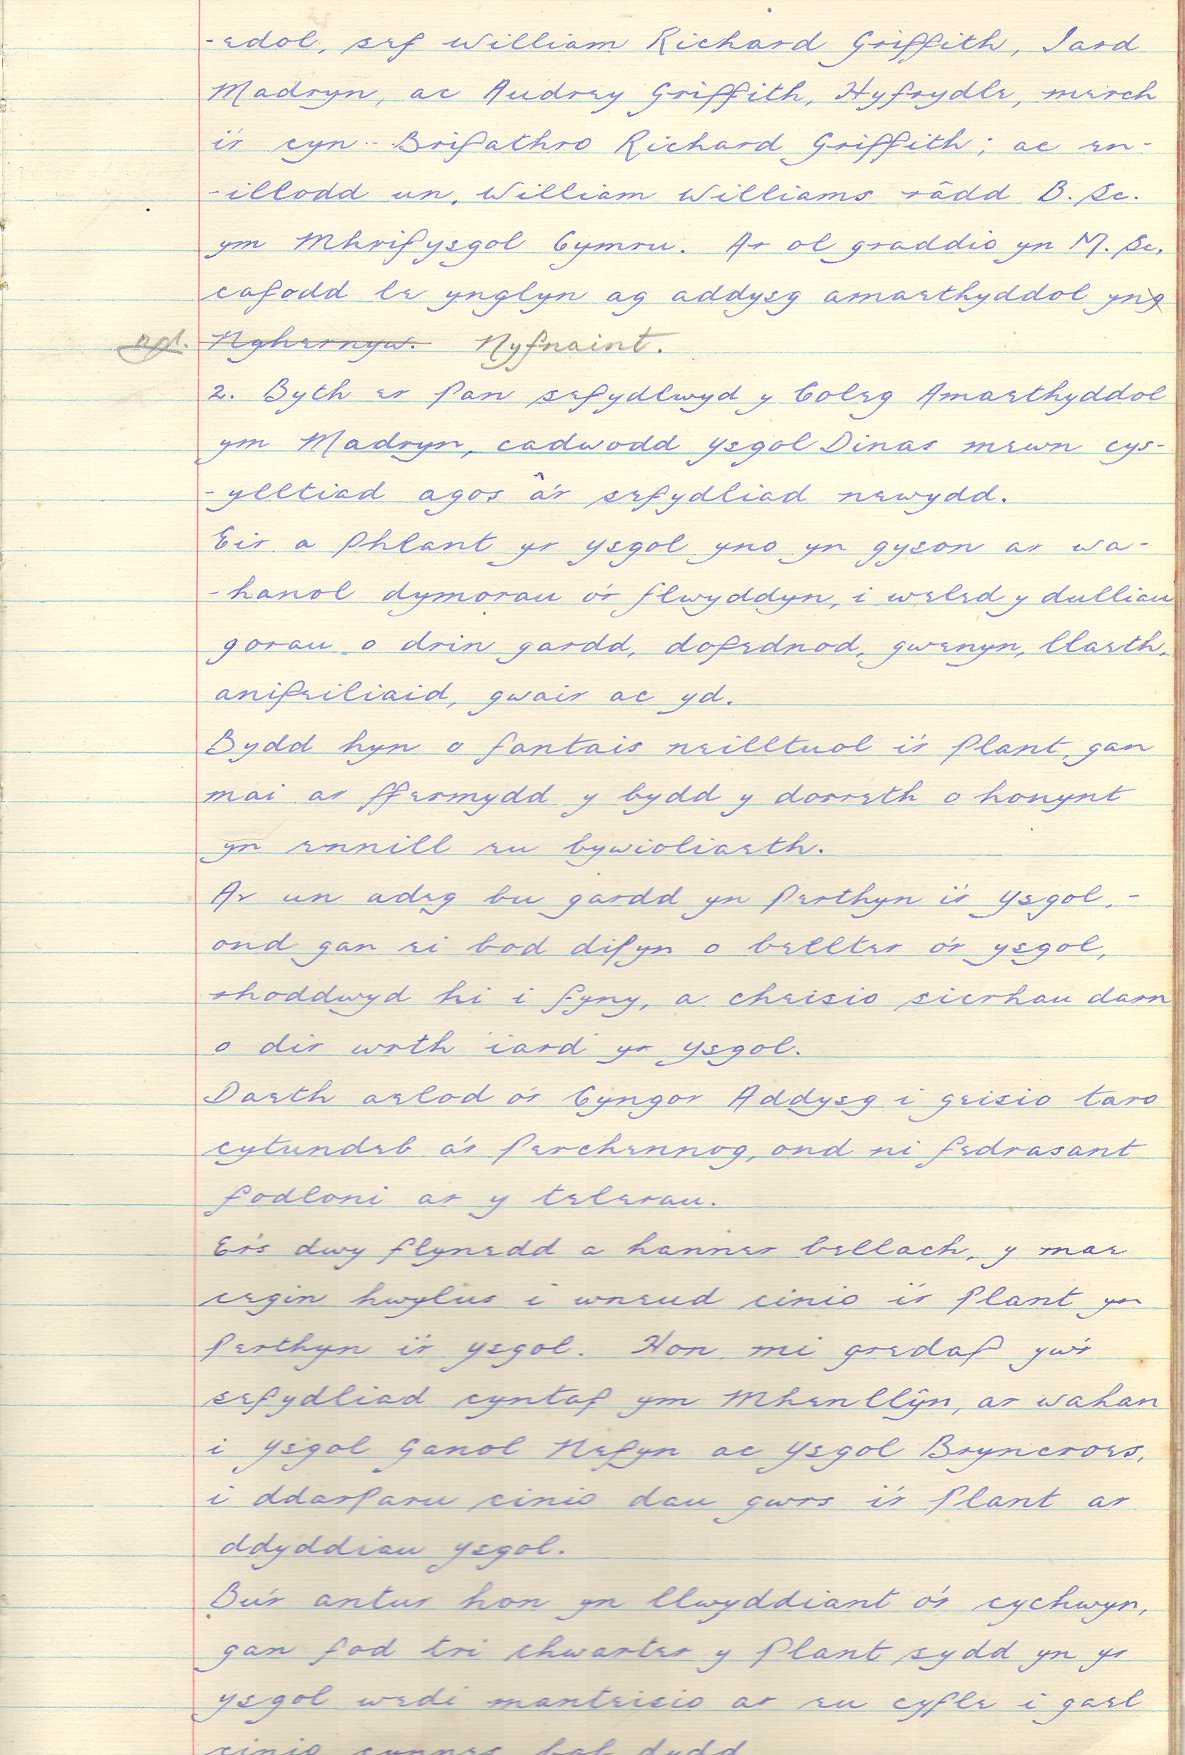 -edol, sef William Richard Griffith, Iard
Madryn, ac Audrey Griffith, Hyfrydle, merch
i'r cyn-Brifathro Richard Griffith; ac en-
-illodd un, William Williams râdd B.Sc.
ym Mhrifysgol Cymru. Ar ol graddio yn M.Sc.
cafodd le ynglyn ag addysg amaethyddol yng
Nghernyw. Nyfnaint.
2. Byth er pan sefydlwyd y Coleg Amaethyddol
ym Madryn, cadwodd Ysgol Dinas mewn cys-
-ylltiad agos â'r sefydliad newydd.
Eir a phlant yr ysgol yno yn gyson ar wa-
-hanol dymorau o'r flwyddyn, i weled y dulliau
gorau o drin gardd, dofednod, gwenyn, llaeth,
anifeiliaid, gwair ac yd.
Bydd hyn o fantais neilltuol i'r plant, gan
mai ar ffermydd y bydd y dorreth o honynt
yn ennill eu bywioliaeth.
Ar un adeg bu gardd yn perthyn i'r Ysgol, -
ond gan ei bod difyn o bellter o'r ysgol,
rhoddwyd hi i fyny, a cheisio sicrhau darn
o dir wrth iard yr Ysgol.
Daeth aelod o'r Cyngor Addysg i geisio taro
cytundeb a'r perchennog, ond ni fedrasant
fodloni ar y telerau.
Er's dwy flynedd a hanner bellach, y mae
cegin hwylus i wneud cinio i'r plant yn
perthyn i'r ysgol. Hon mi gredaf yw'r
sefydliad cyntaf ym Mhenllŷn, ar wahan
i Ysgol Ganol Nefyn ac Ysgol Bryncroes,
i ddarparu cinio dau gwrs i'r plant ar
ddyddiau ysgol.
Bu'r antur hon yn llwyddiant o'r cychwyn,
gan fod tri chwarter y plant sydd yn yr
ysgol wedi manteisio ar eu cyfle i gael
cinio cynnes bob dydd.